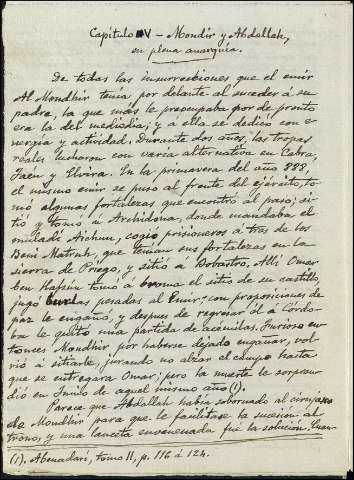 Capítulo V – Mondir y Abdallah,
en plena anarquía.
De todas las insurrecciones que el emir
Al Mondhir tenía por delante al suceder á su
padre, la que más le preocupaba por de pronto
era la del mediodía; y á ella se dedicó con e-
nergía y actividad. Durante dos años, las tropas
reales lucharon con varia alternativa en Cabra,
Jaen y Elvira. En la primavera del año 888,
el mismo emir se puso al frente del ejército, to-
mó algunas fortalezas que encontró al paso; si-
tió y tomó á Archidona, donde mandaba el
muladí Aichun, cogió prisioneros á tres de los
Beni Matruh, que tenían sus fortalezas en la
sierra de Priego, y sitió á Bobastro. Allí Omar
ben Hafsún tomó á broma el sitio de su castillo,
jugó burlas pesadas al Emir; con proposiciones de
paz le engañó, y despues de regresar él á Córdo-
ba le quitó una partida de acémilas. Furioso en-
tonces Mondhir por haberse dejado engañar, vol-
vió á sitiarle, jurando no alzar el campo hasta
que se entregara Omar; pero la muerte le sorpren-
dió en Junio de aquel mismo año (1).
Parece que Abdallah había sobornado al cirujano
de Mondhir para que le facilitase la sucesión al
trono, y una lanceta envenenada fué la solución. Cuan-
(1). Abenadari, tomo II, p. 116 á 124.